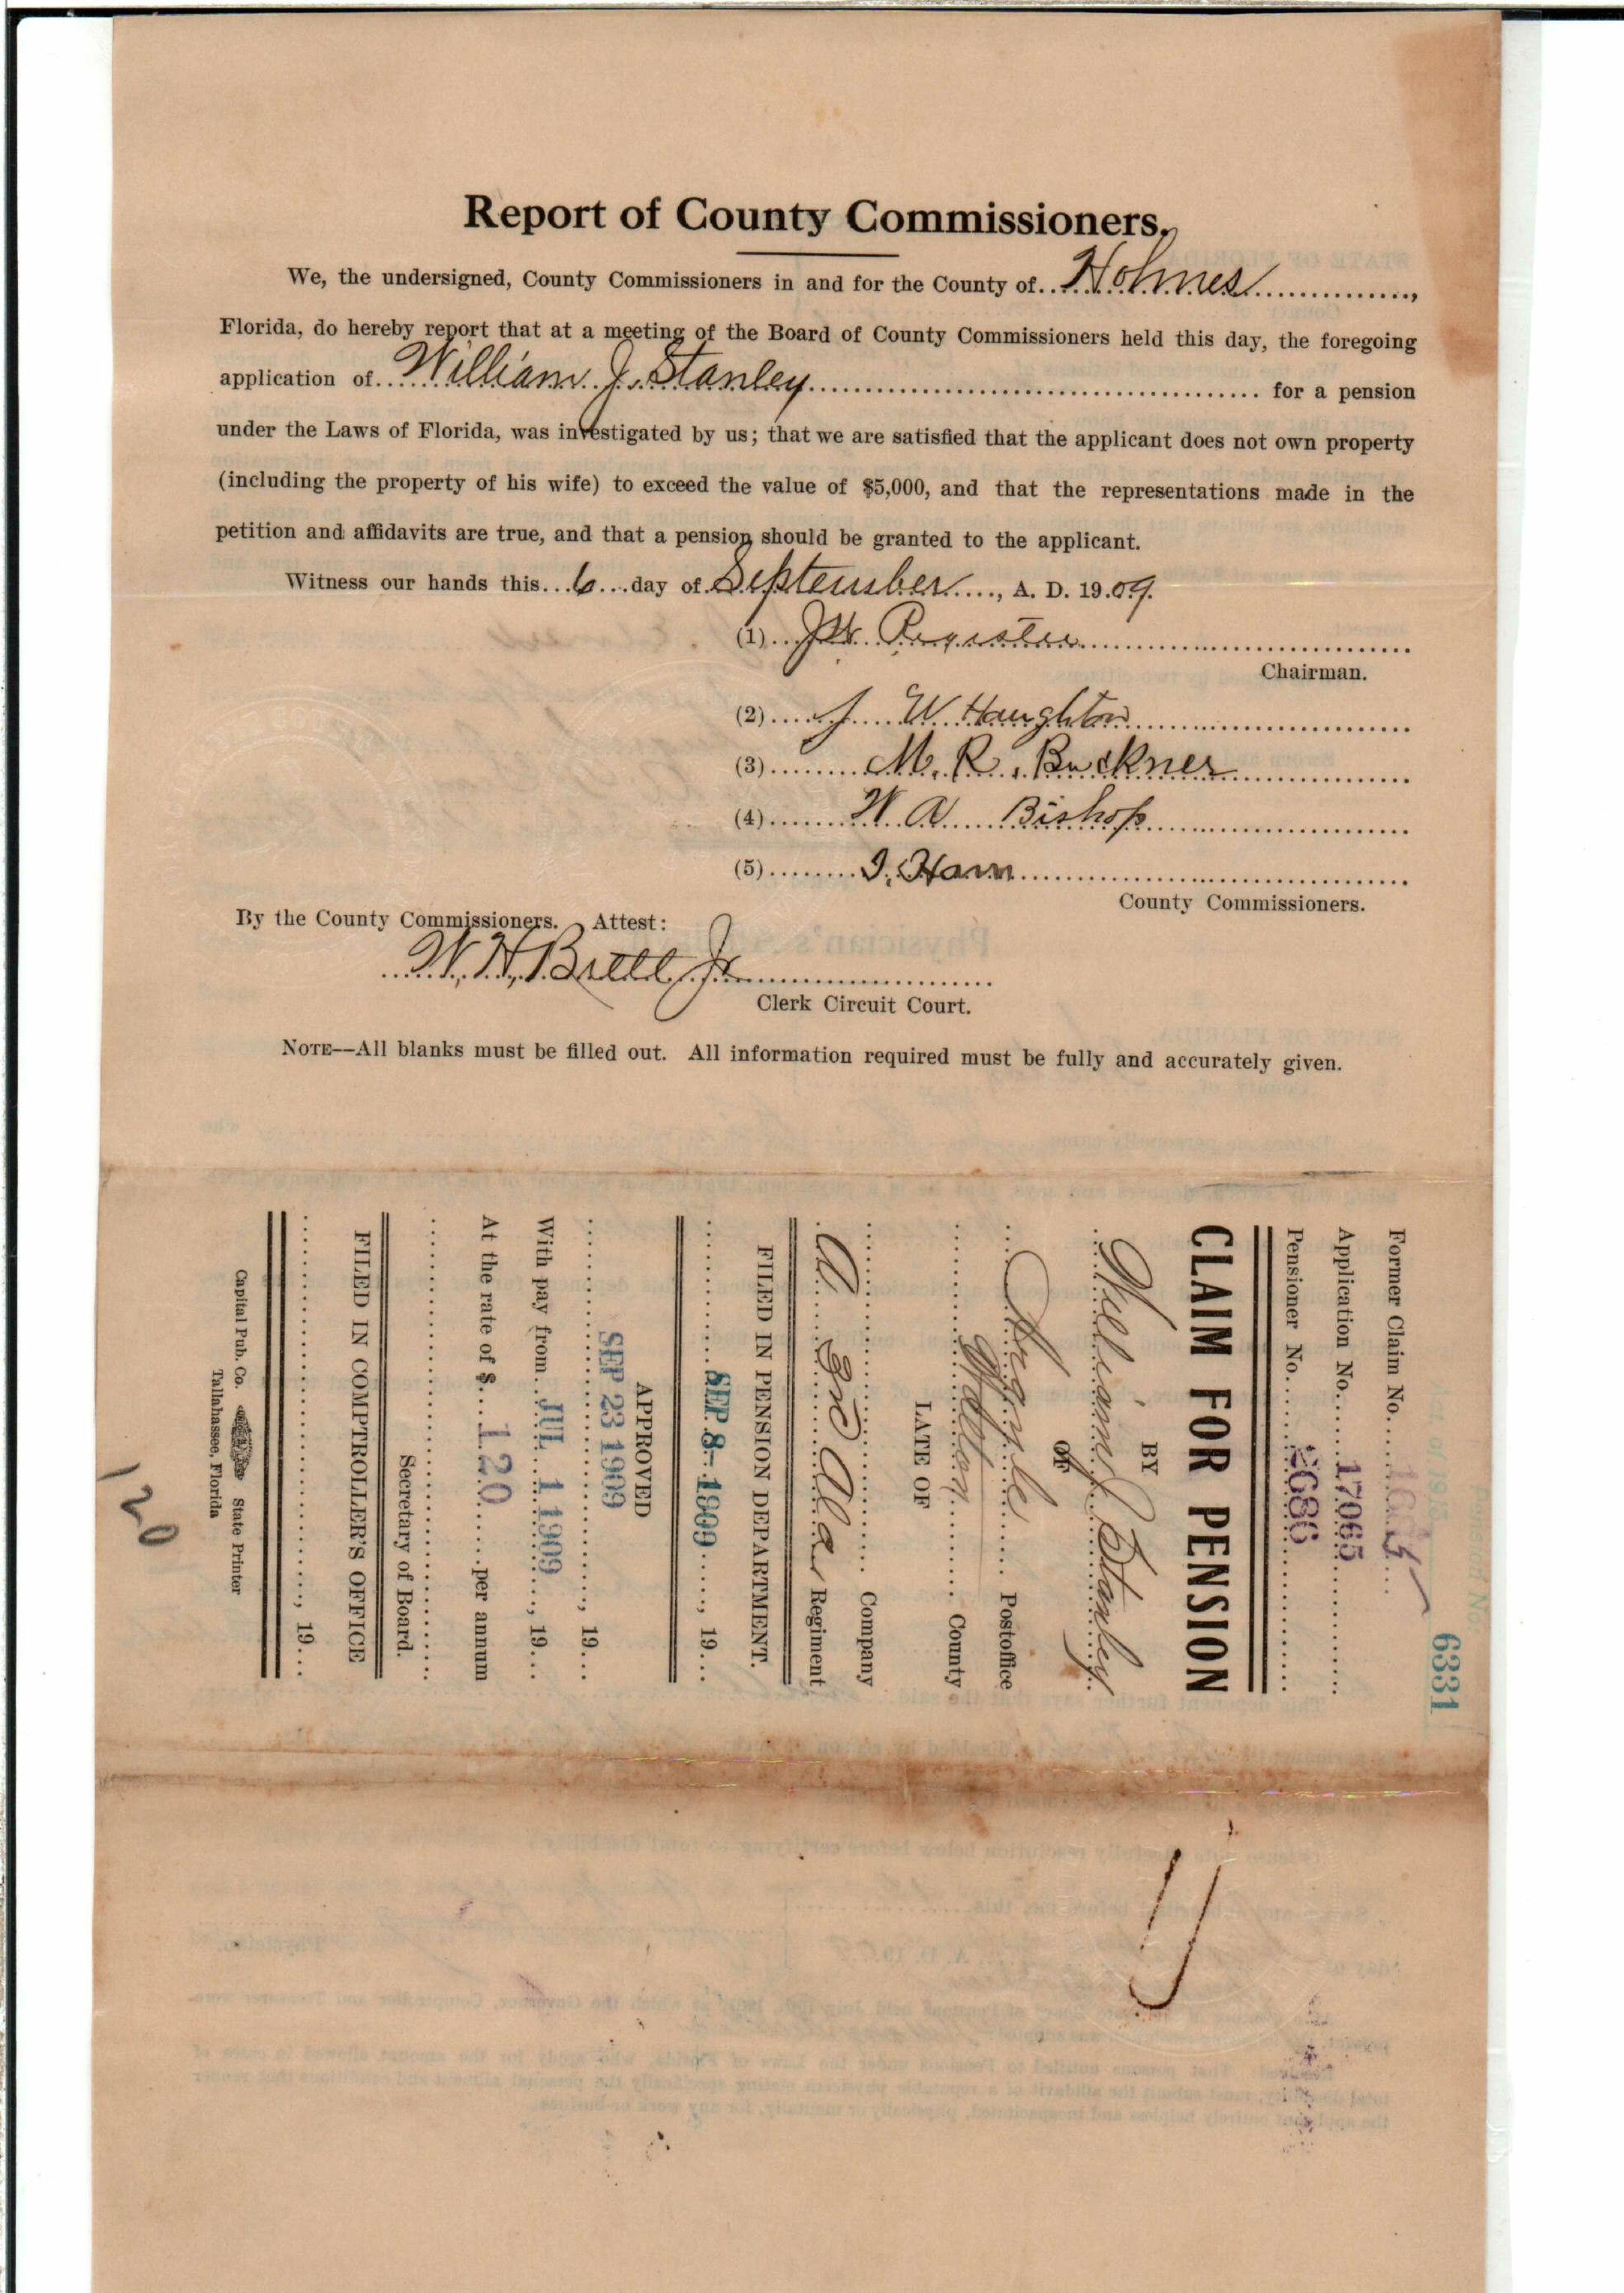 Report of County Commissioners.
We, the undersigned, County Commissioners in and for the County of Holmes,
Florida, do hereby report that at a meeting of the Board of County Commissioners held this day, the foregoing
application of William J. Stanley for a pension
under the Laws of Florida, was investigated by us; that we are satisfied that the applicant does not own property
(including the property of his wife) to exceed the value of $5,000, and that the representations made in the
petition and affidavits are true, and that a pension should be granted to the applicant.
Witness our hands this 6 day of September, A. D. 1909.
(1) J W Register
Chairman.
(2) J W Haughton
(3) M. R. Buckner
(4) W A Bishop
(5) I. Ham
County Commissioners.
By the County Commissioners. Attest:
W. H. Brett Jr
Clerk Circuit Court.
NOTE—All blanks must be filled out. All information required must be fully and accurately given.
6331
Former Claim No.
Application No. 17065
Pensioner No. 2686
CLAIM FOR PENSION
BY
William J Stanley
OF
Argyle Postoffice
Walton County
LATE OF
Company
A 3rd Ala Regiment
FILED IN PENSION DEPARTMENT.
SEP 8- 1909, 19
APPROVED
SEP 23 1909, 19
With pay from JUL 1 1909, 19
At the rate of $ 120 per annum
Secretary of Board.
FILED IN COMPTROLLER'S OFFICE
, 19
Capital Pub. Co. State Printer
Tallahassee, Florida
120